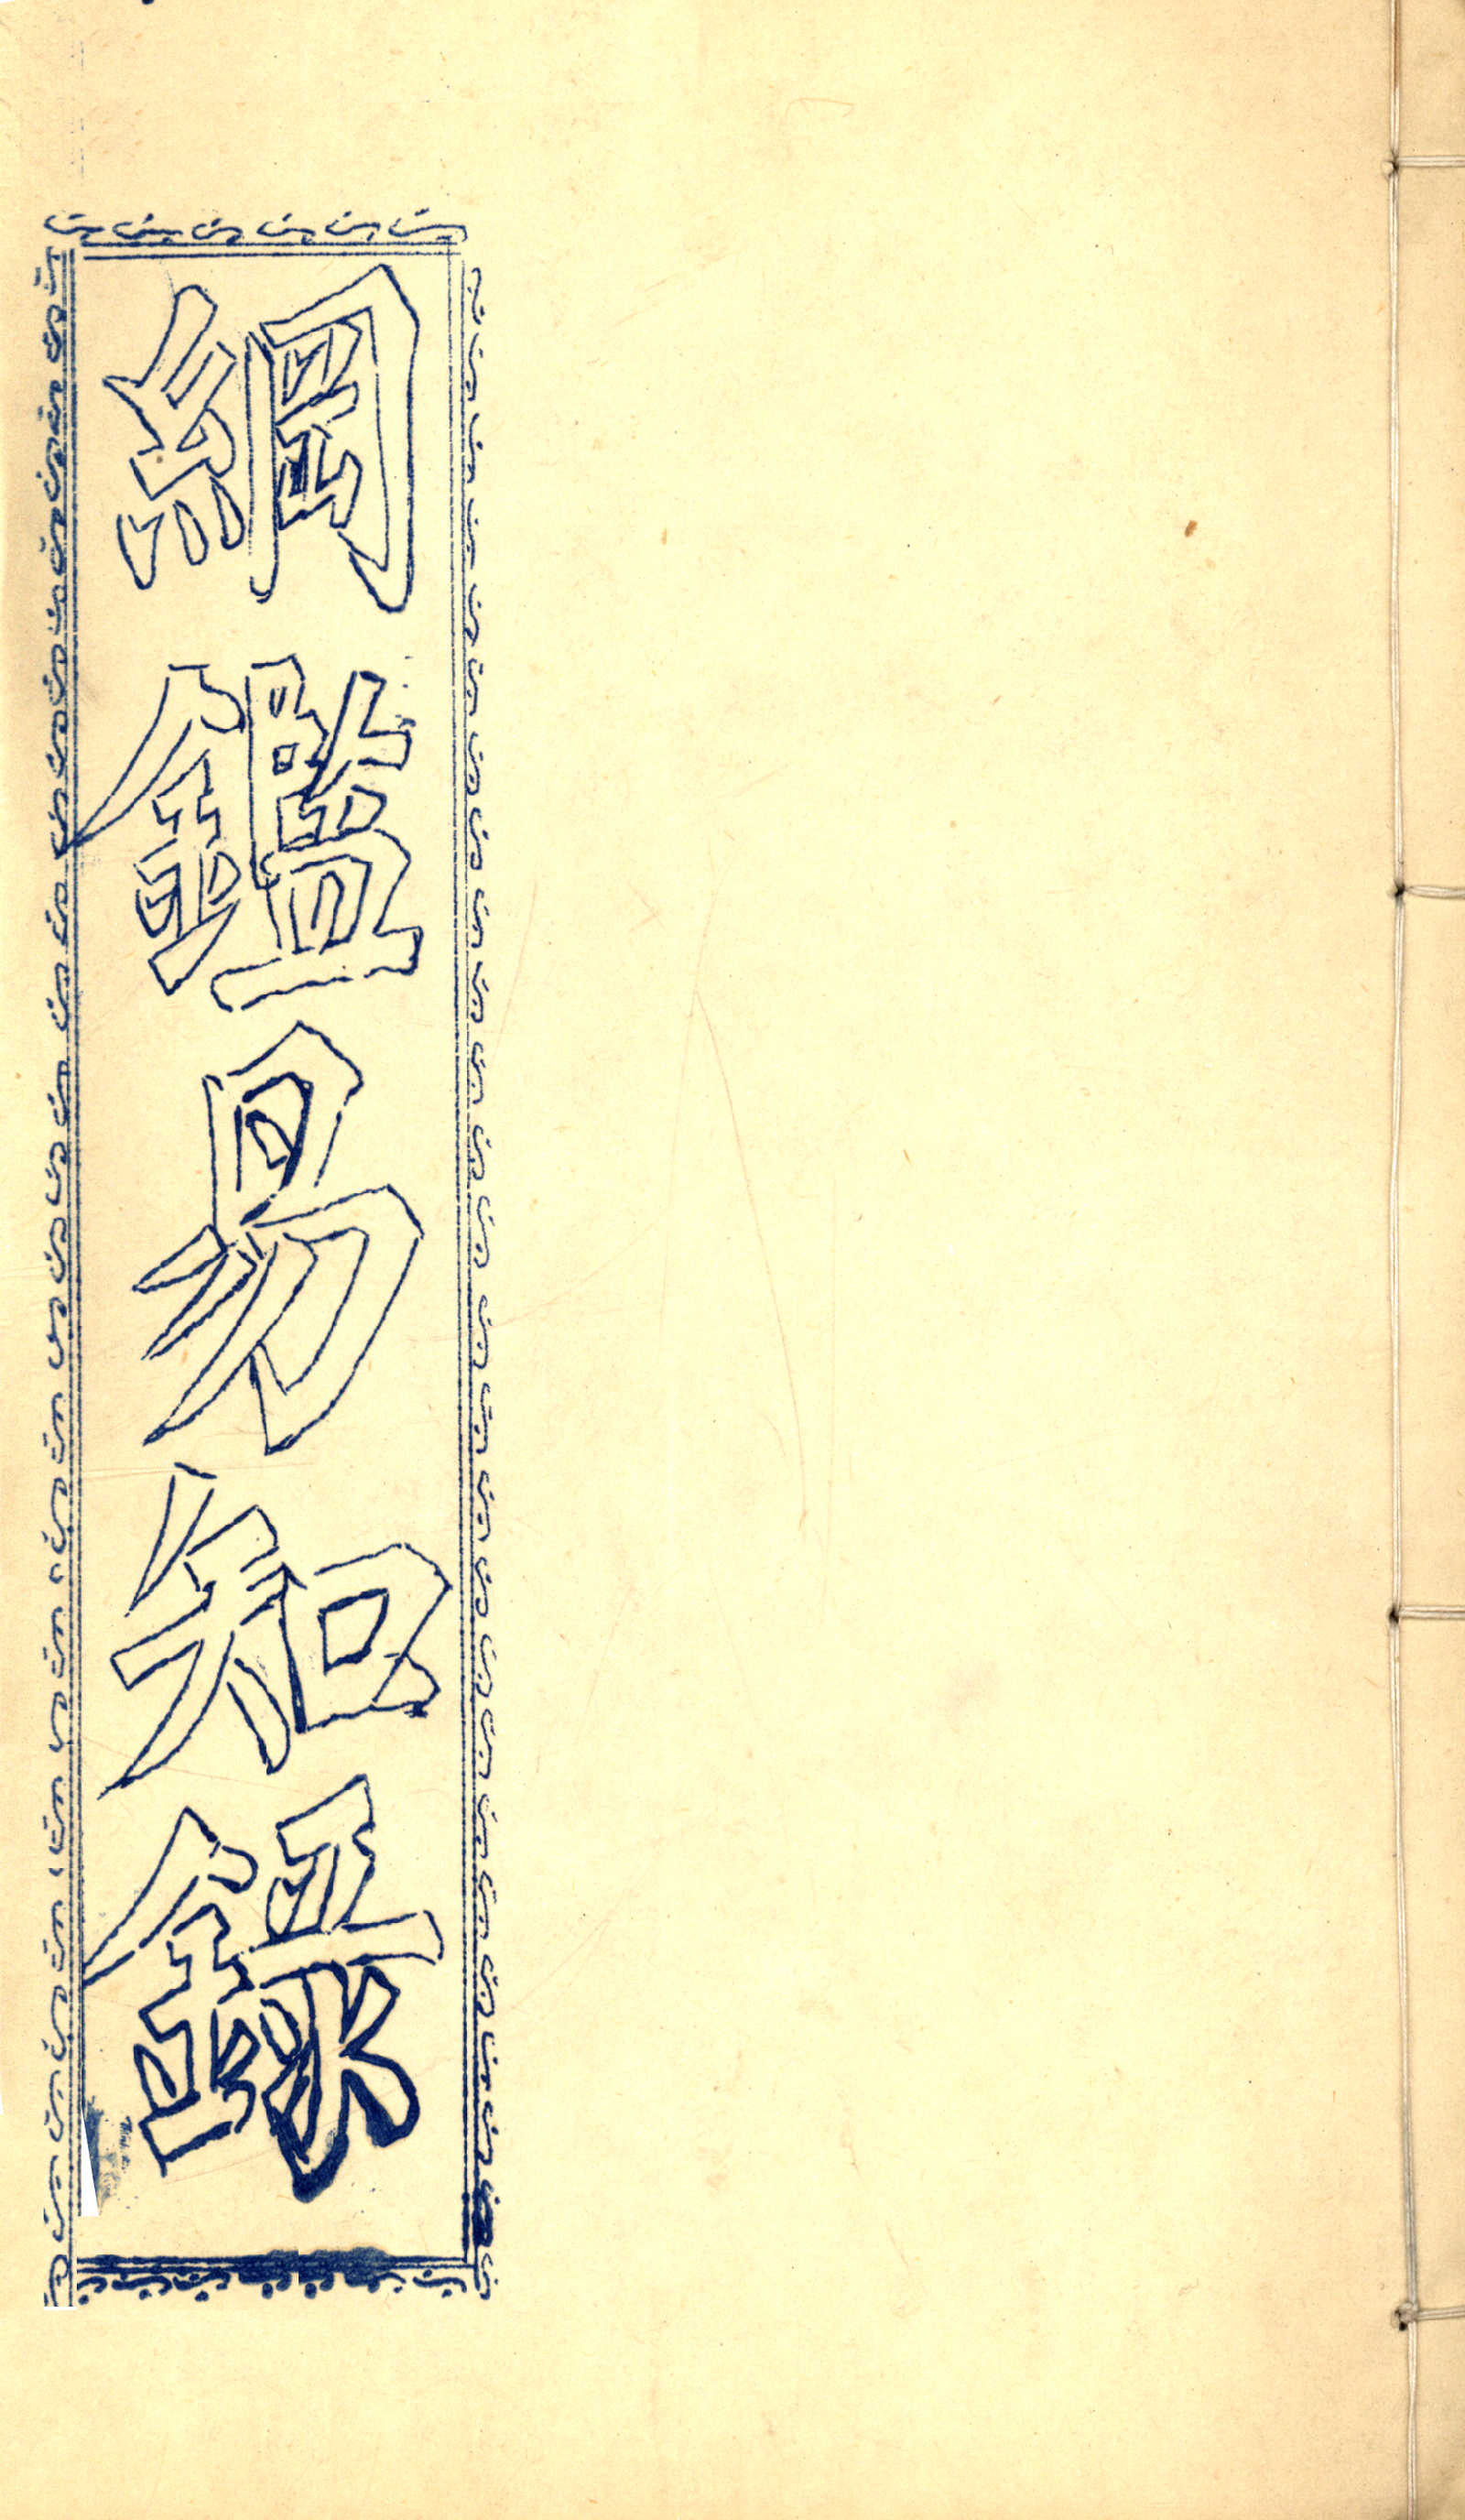 綱鑑易知錄